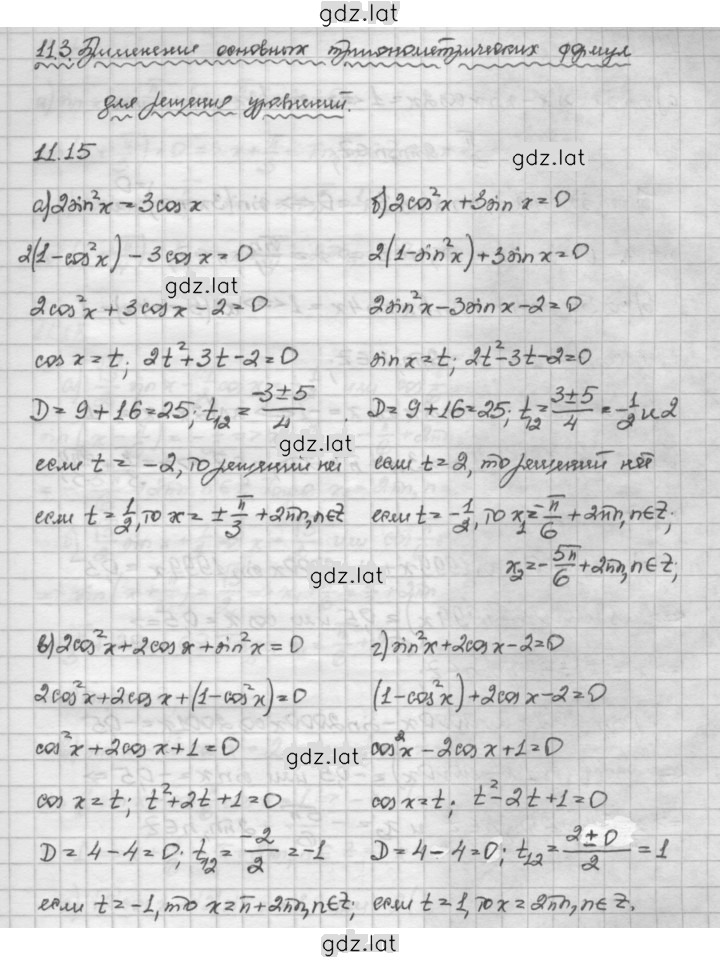 gdz.lat
11.3. Применение основных тригонометрических формул
для решения уравнений.
11.15
gdz.lat
а) 2sin²x = 3cos x
2(1-cos²x) - 3cos x = 0
gdz.lat
2cos²x + 3cos x - 2 = 0
cos x = t; 2t² + 3t - 2 = 0
D = 9 + 16 = 25; t₁₂ = (-3 ± 5)/4
gdz.lat
если t = -2, то решений не
если t = 1/2, то x = ± π/3 + 2πn, n∈Z
gdz.lat
б) 2cos²x + 3sin x = 0
2(1-sin²x) + 3sin x = 0
2sin²x - 3sin x - 2 = 0
sin x = t; 2t² - 3t - 2 = 0
D = 9 + 16 = 25; t₁₂ = (3 ± 5)/4 = -1/2 и 2
если t = 2, то решений нет
если t = -1/2, то x₁ = -π/6 + 2πn, n∈Z;
x₂ = -5π/6 + 2πn, n∈Z;
в) 2cos²x + 2cos x + sin²x = 0
2cos²x + 2cos x + (1-cos²x) = 0
cos²x + 2cos x + 1 = 0
gdz.lat
cos x = t; t² + 2t + 1 = 0
D = 4 - 4 = 0; t₁₂ = -2/2 = -1
если t = -1, то x = π + 2πn, n∈Z;
г) sin²x + 2cos x - 2 = 0
(1-cos²x) + 2cos x - 2 = 0
cos²x - 2cos x + 1 = 0
cos x = t; t² - 2t + 1 = 0
D = 4 - 4 = 0; t₁₂ = (2 ± 0)/2 = 1
если t = 1, то x = 2πn, n∈Z.
gdz.lat